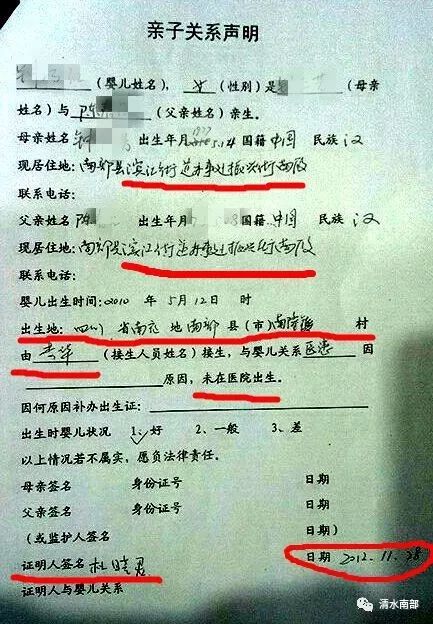 亲子关系声明
（婴儿姓名），女（性别）是（母亲
姓名）与陈（父亲姓名）亲生。
母亲姓名 钟 出生年月 5.14 国籍 中国 民族 汉
现居住地：南部县滨江街道办事处振兴街南段
联系电话：
父亲姓名：陈 出生年月 08 国籍．中国 民族 汉
现居住地：南部县滨江街道办事处振兴街南段
联系电话：
婴儿出生时间：2010 年 5 月 12 日 时
出生地：四川 省南充 地 南部 县（市）南隆镇 村
由 （接生人员姓名）接生，与婴儿关系医患 因
原因，未在医院出生。
因何原因补办出生证：
出生时婴儿状况 1、好 2、一般 3、差
以上情况若不属实，愿负法律责任。
母亲签名 身份证号 日期
父亲签名 身份证号 日期
（或监护人签名 日期）
证明人签名 杜晓君 日期 2012.11.28
证明人与婴儿关系
清水南部